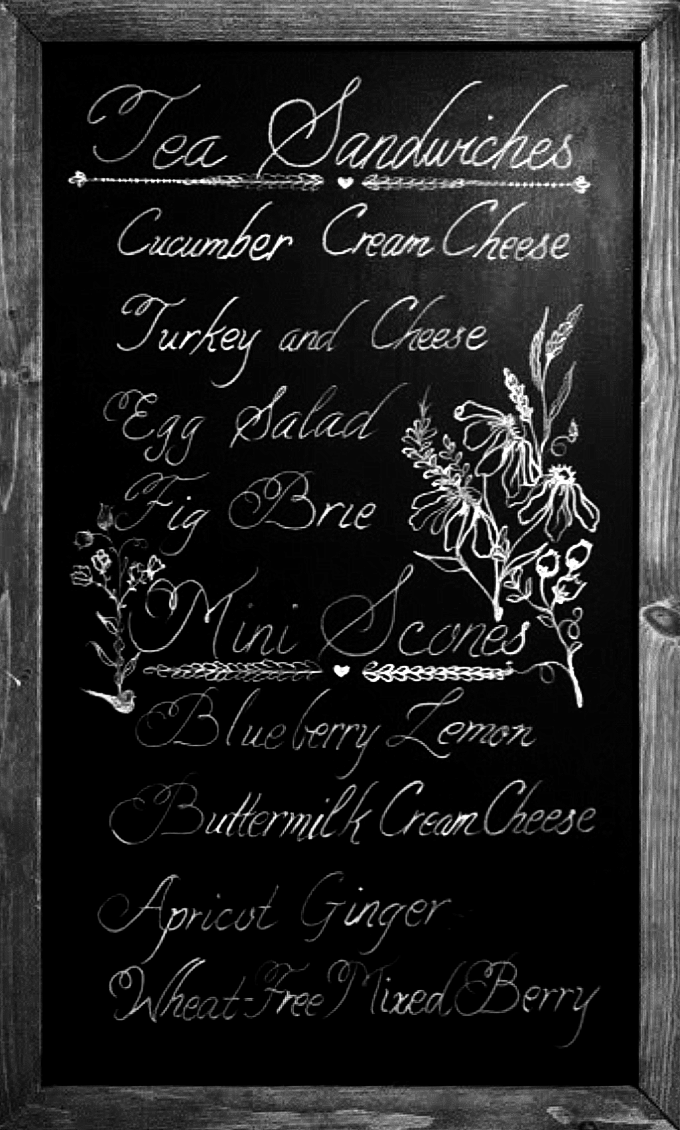 Tea Sandwiches
Cucumber Cream Cheese
Turkey and Cheese
Egg Salad
Fig Brie
Mini Scones
Blueberry Lemon
Buttermilk Cream Cheese
Apricot Ginger
Wheat-Free Mixed Berry